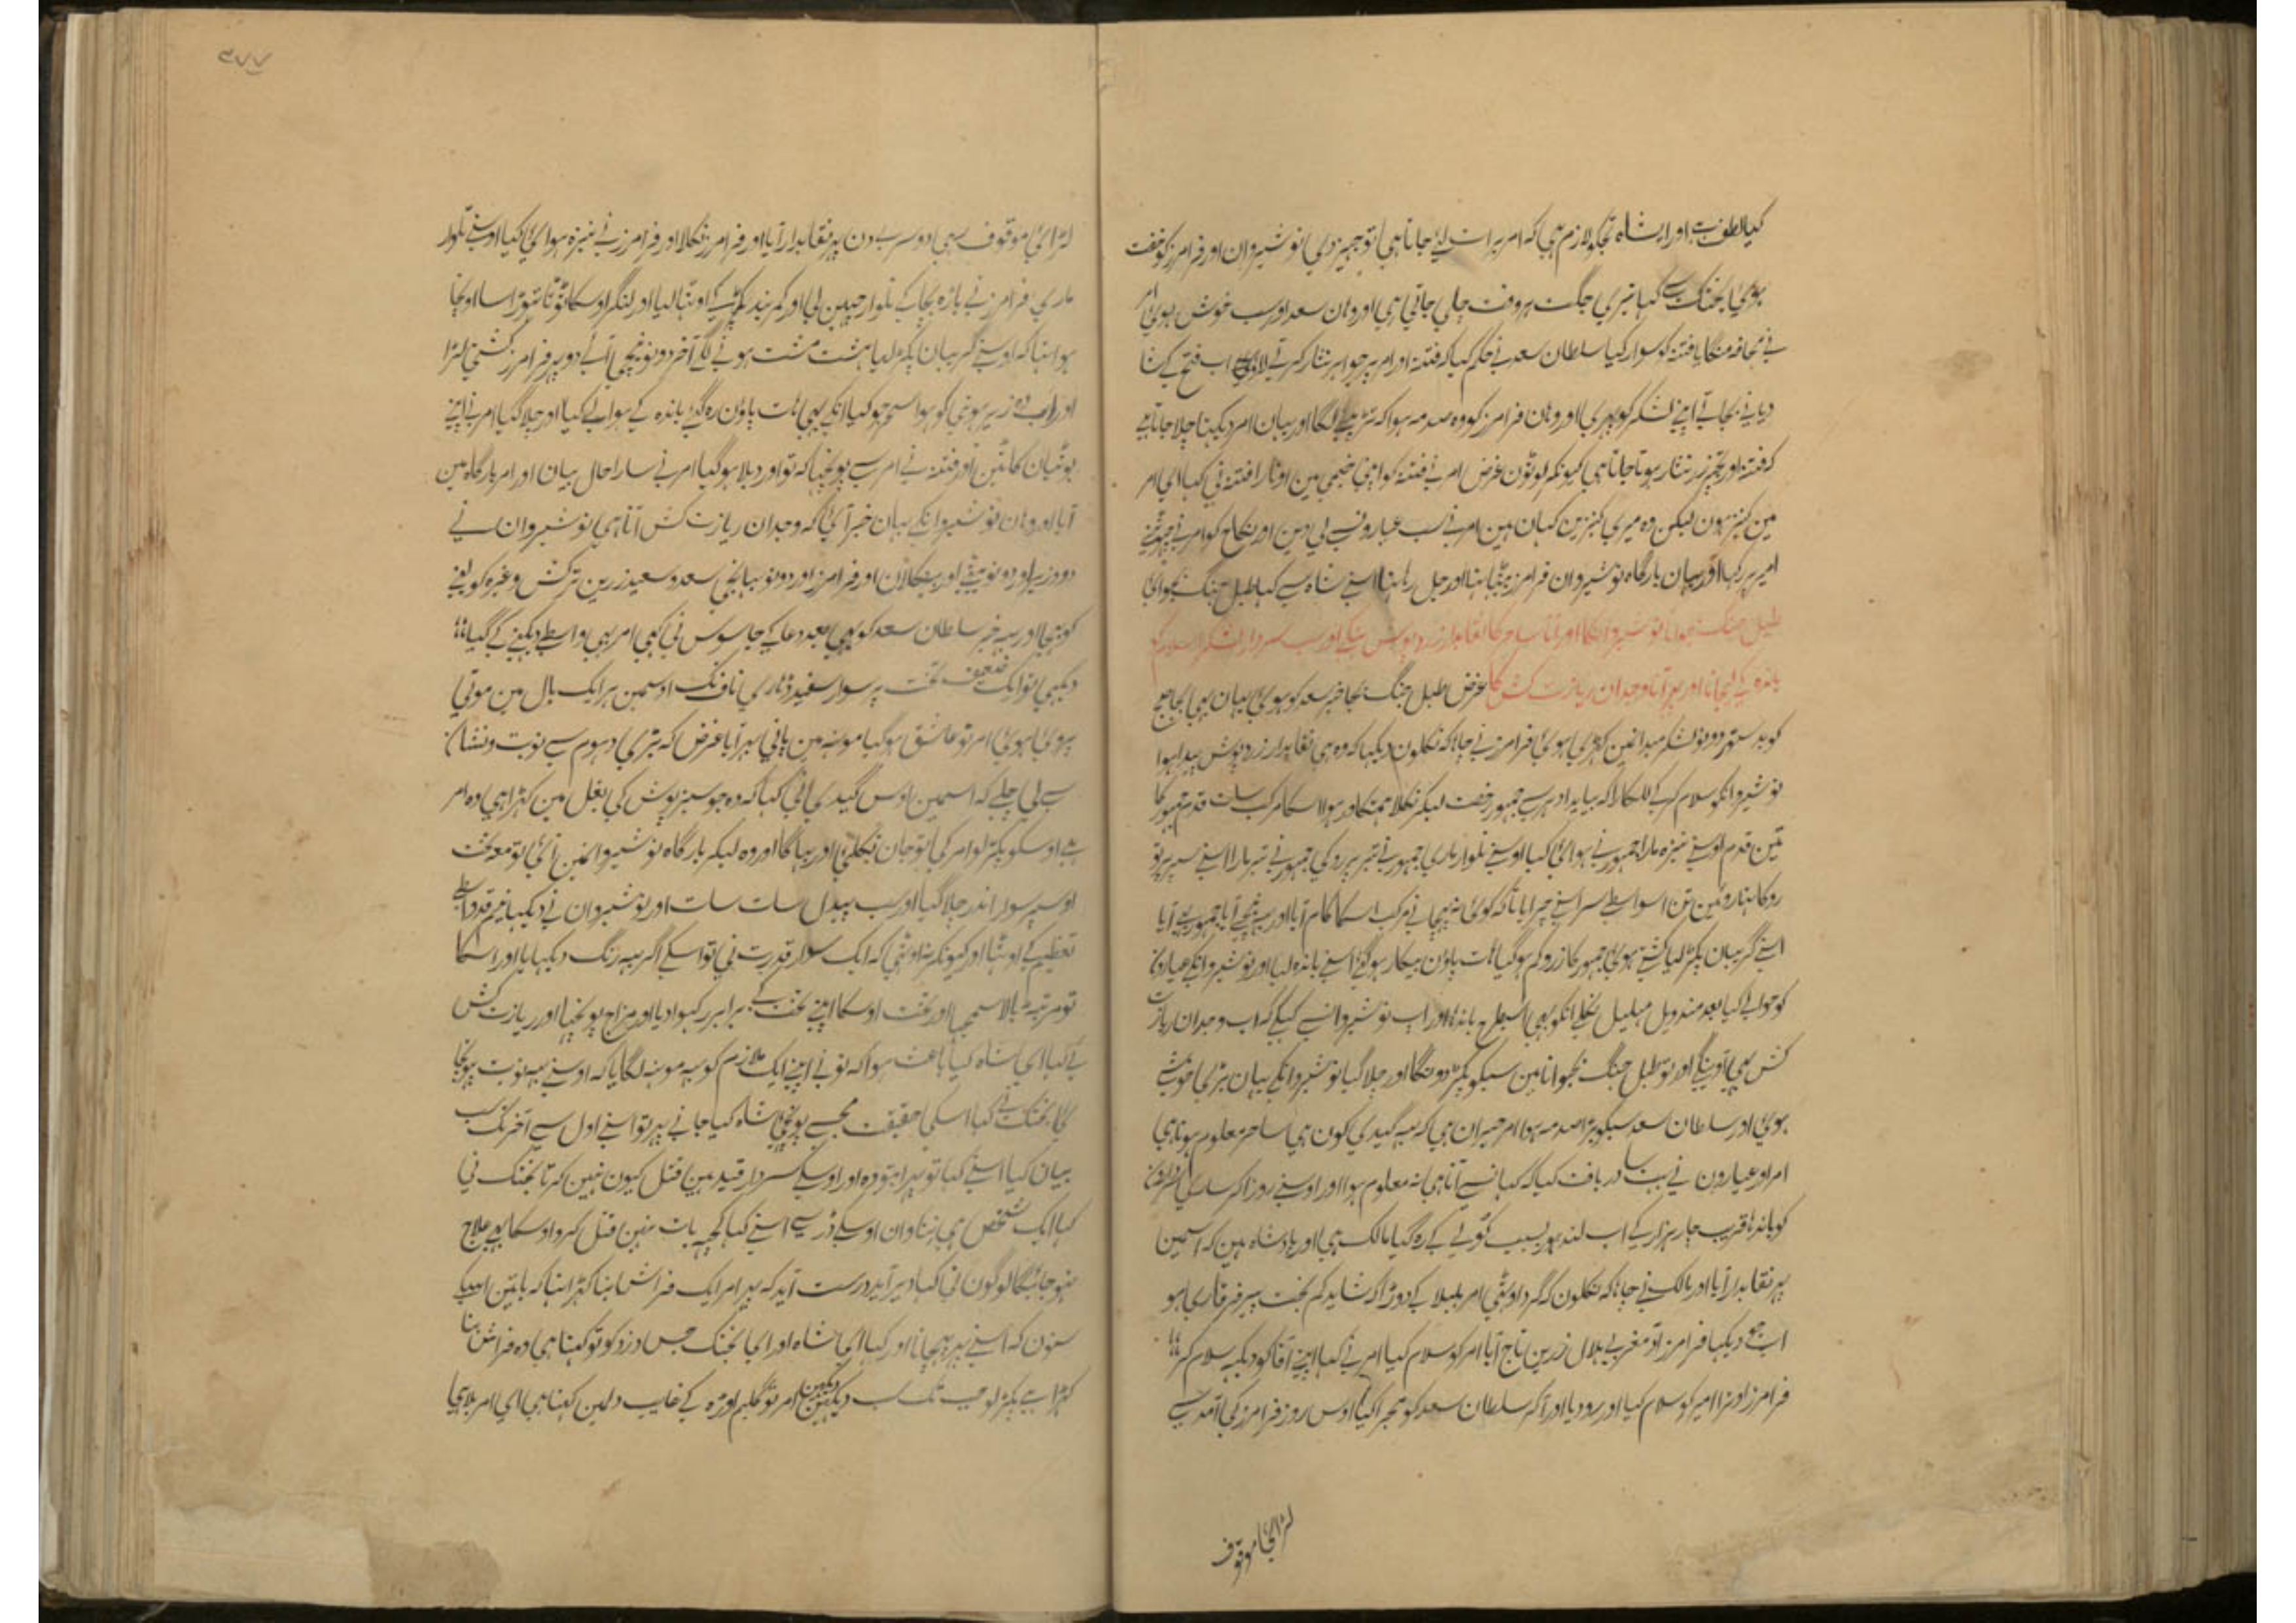 کیا لطف ہی اور ایشاہ تجکو لازم ہی کہ امر برات لیئے جاتا ہی تو جہیز دی نوشیروان اور فرامرز کو خفت
ہوئی بختک سے کہا تیری جگت ہر وقت چلی جاتی ہی اور وہان سعد اور سب خوش ہوئی امر
نے محافہ منگایا فتنہ کو سوار کیا سلطان سعد نے حکم کیا کہ فتنہ اور امر پر جواہر نثار کرتے لاؤ اب فتح کے شا
دیانے بجاتے اپنے لشکر کو پھری اور وہان فرامرز کو وہ صدمہ ہوا کہ تڑپنے لگا اور یہان امر دیکھتا چلا جاتا ہے
کہ فتنہ اور مجھپر زر نثار ہوتا جاتا ہی کیونکر لوٹون غرض امر نے فتنہ کو اپنی خیمی مین اوتارا فتنہ نی کہا ای امر
مین کنیز ہون لیکن وہ میری کنیزین کہان ہین امر نے سب عیارونسے لی دین اور نکاح کو امر نے
امیر پر رکھا اور یہان بارگاہ نوشیروان فرامرز بیٹھا تھا اور جل رہا تھا اسنے شاہ سے کہا طبل جنگ بجوائی
طبل جنگ بجوانا نوشیروانکا اور آنا ساحر کا نقابدار زرد پوش بنکے اور سب سرداران لشکر اسلام کو
باندہ کے لیجانا اور پھر آنا وجدان ریازت کش کا غرض طبل جنگ بجا خبر سعد کو ہوئی یہان بہی بجا صبح
کو بدستور دونو لشکر میدانمین کہڑی ہوئی فرامرز نے چاہا کہ نکلون دیکھا کہ وہ ہی نقابدار زرد پوش پیدا ہوا
نوشیروانکو سلام کر کے للکارا کہ بیایید ادہر سے جمہور رخصت لیکر نکلا ہمتگاور ہوا اسکا مرکب سات قدم جمہور کا
تین قدم اوسنے نیزہ مارا جمہور نے ہوائی کیا اوسنے تلوار ماری جمہور نے تبر پر روکی جمہور نے تبر مارا اسنے سپر پر تو
روکا
اسنے گریبان پکڑ لیا کشتی ہوئی جمہور کا زور کم ہو گیا ہات پاؤن بیکار ہو گئے اسنے باندہ لیا اور نوشیروانکے عیارونکو
کو حوالے کیا بعد مندویل صلیل نکلے انکو بہی اسیطرح باندہا اور اب نوشیروانسے کہیگے کہ اب وجدان ریازت
کش بہی آوینگے اور تو طبل جنگ بجوانا مین سبکو پکڑ دونگا اور چلا گیا نوشیروانکے یہان بڑی خوشی
ہوئی اور سلطان سعد سبکو بڑا صدمہ ہوا امر حیران ہی کہ یہ گیدی کون ہی ساحر معلوم ہوتا ہی
امر اور عیارون نے بہت سا دریافت کیا کہ کہانسے آتا ہی نہ معلوم ہوا اور اوسنے روز آکر ساری سردارونکو
کو باندہا قریب چار ہزار کے اب لندہور بسبب کولے کے رہ گیا مالک ہی اور بادشاہ ہین کہ اسمین
پہر نقابدار آیا اور مالک نے چاہا کہ نکلون کہ گرد اوٹھی امر بلبلا کے دوڑا کہ شاید کم بخت پیر فرخاری ہو
اب جو دیکھا فرامرز تو مغربی ہلال زرین تاج آیا امر کو سلام کیا امر نے کہا اپنے آقا کو دیکھہ سلام کر
فرامرز اوترا امیر کو سلام کیا اور رو دیا اور آکر سلطان سعد کو مجرا کیا اوس روز فرامرز کی آمد سے
لڑائی موقوف
۴۷۷
لڑائی موقوف رہی دوسرے دن پہر نقابدار آیا اور فرامرز نکلا اور فرامرز نے نیزہ ہوائی کیا اوسنے تلوار
ماری فرامرز نے باڑہ بچا کے تلوار چہین لی اور کمر بند پکڑ کے اوٹھا لیا اور لنگر اوسکا ٹوٹا تھوڑا سا اونچا
ہوا تھا کہ اوسنے گریبان پکڑ لیا مشت مشت ہونے لگے آخر دونو نیچی آئے دو پہر فرامرز کشتی لڑا
اور اب دو پہر ہوئی کو ہوا انکے بہی ہات پاؤن رہ گئے باندہ کے ہوالے کیا اور چلا گیا امر نے اپنے
بوٹیان کاٹین اور فتنہ نے امر سے پونچھا کہ تو اور دبلا ہو گیا امر نے سارا حال بیان اور امر بارگاہ مین
آیا اور وہان نوشیروانکے یہان خبر آئی کہ وجدان ریازت کش آتا ہی نوشیروان نے
دو وزیر اور دو نو بیٹے اور بہنکلان اور فرامرز اور دونو بہانجی سعد و سعید زرین ترکش وغیرہ کو لینے
کو بہیجا اور یہ خبر سلطان سعد کو بہی بعد دعا کے جاسوس نی کہی امر بہی واسطے دیکھنے کے گیا
دیکہی تو ایک ضعیف تخت پر سوار سفید ڈاڑہی ناف تک اوسمین ہر ایک بال مین موتی
پروئی ہوئی امر تو عاشق ہو گیا مونہہ مین پانی بہر آیا غرض کہ بڑی دہوم سے نوبت و نشان
سے لی چلے کہ اسمین اوس گیدی نی کہا کہ وہ جو سبز پوش کی بغل مین کہڑا ہی وہ امر
ہے اوسکو پکڑ لو امر کی تو جان نکلگئی اور بہاگا اور وہ لیکر بارگاہ نوشیروانمین آئی تو معہ تخت
اوسپر سوار اندر چلا گیا اور سب پیدل سات سات اور نوشیروان نے دیکھا نیم قد واسطے
تعظیم کے اوٹھا اور کیونکر نہ اوٹھی کہ ایک سوار قدرت نی تو اسکے اگر یہ رنگ دیکھایا اور اسکا
تو مرتبہ بالا سمجھا اور تخت اوسکا اپنے تخت کے برابر رکہوا دیا اور مزاج پونچھا اور ریازت کش
نے کہا ای شاہ کیا باعث ہوا کہ تو نے اپنے ایک ملازم کو یہ مونہہ لگایا کہ اوسنے یہہ نوبت پہونچا
ئی بختک نے کہا اسکی حقیقت مجہسے پونچھ شاہ کیا جانے پہر تو اسنے اول سے آخر تک سب
بیان کیا اسنے کہا تو پہر اب تو وہ اور اوسکے سردار قید ہین قتل کیون نہین کرتا بختک نی
کہا ایک شخص ہی بنا دان اوسکے ڈر سے اسنے کہا کچہہ بات نہین قتل کرو اوسکا بہی علاج
ہو جائیگا لوگون نی کہا دیر آید درست آید کہ پہر امر ایک فراش بنا کہڑا تھا کہ باتین اسکی
سنون کہ اسنے پہر پہچانا اور کہا ای شاہ اور ای بختک جس دزد کو تو کہتا ہی وہ فراش بنا
کہڑا ہے پکڑ لو جب تک سب دیکھین امر تو گلیم اوڑہ کے غایب دلمین کہتا ہی ای امر بلا ہی